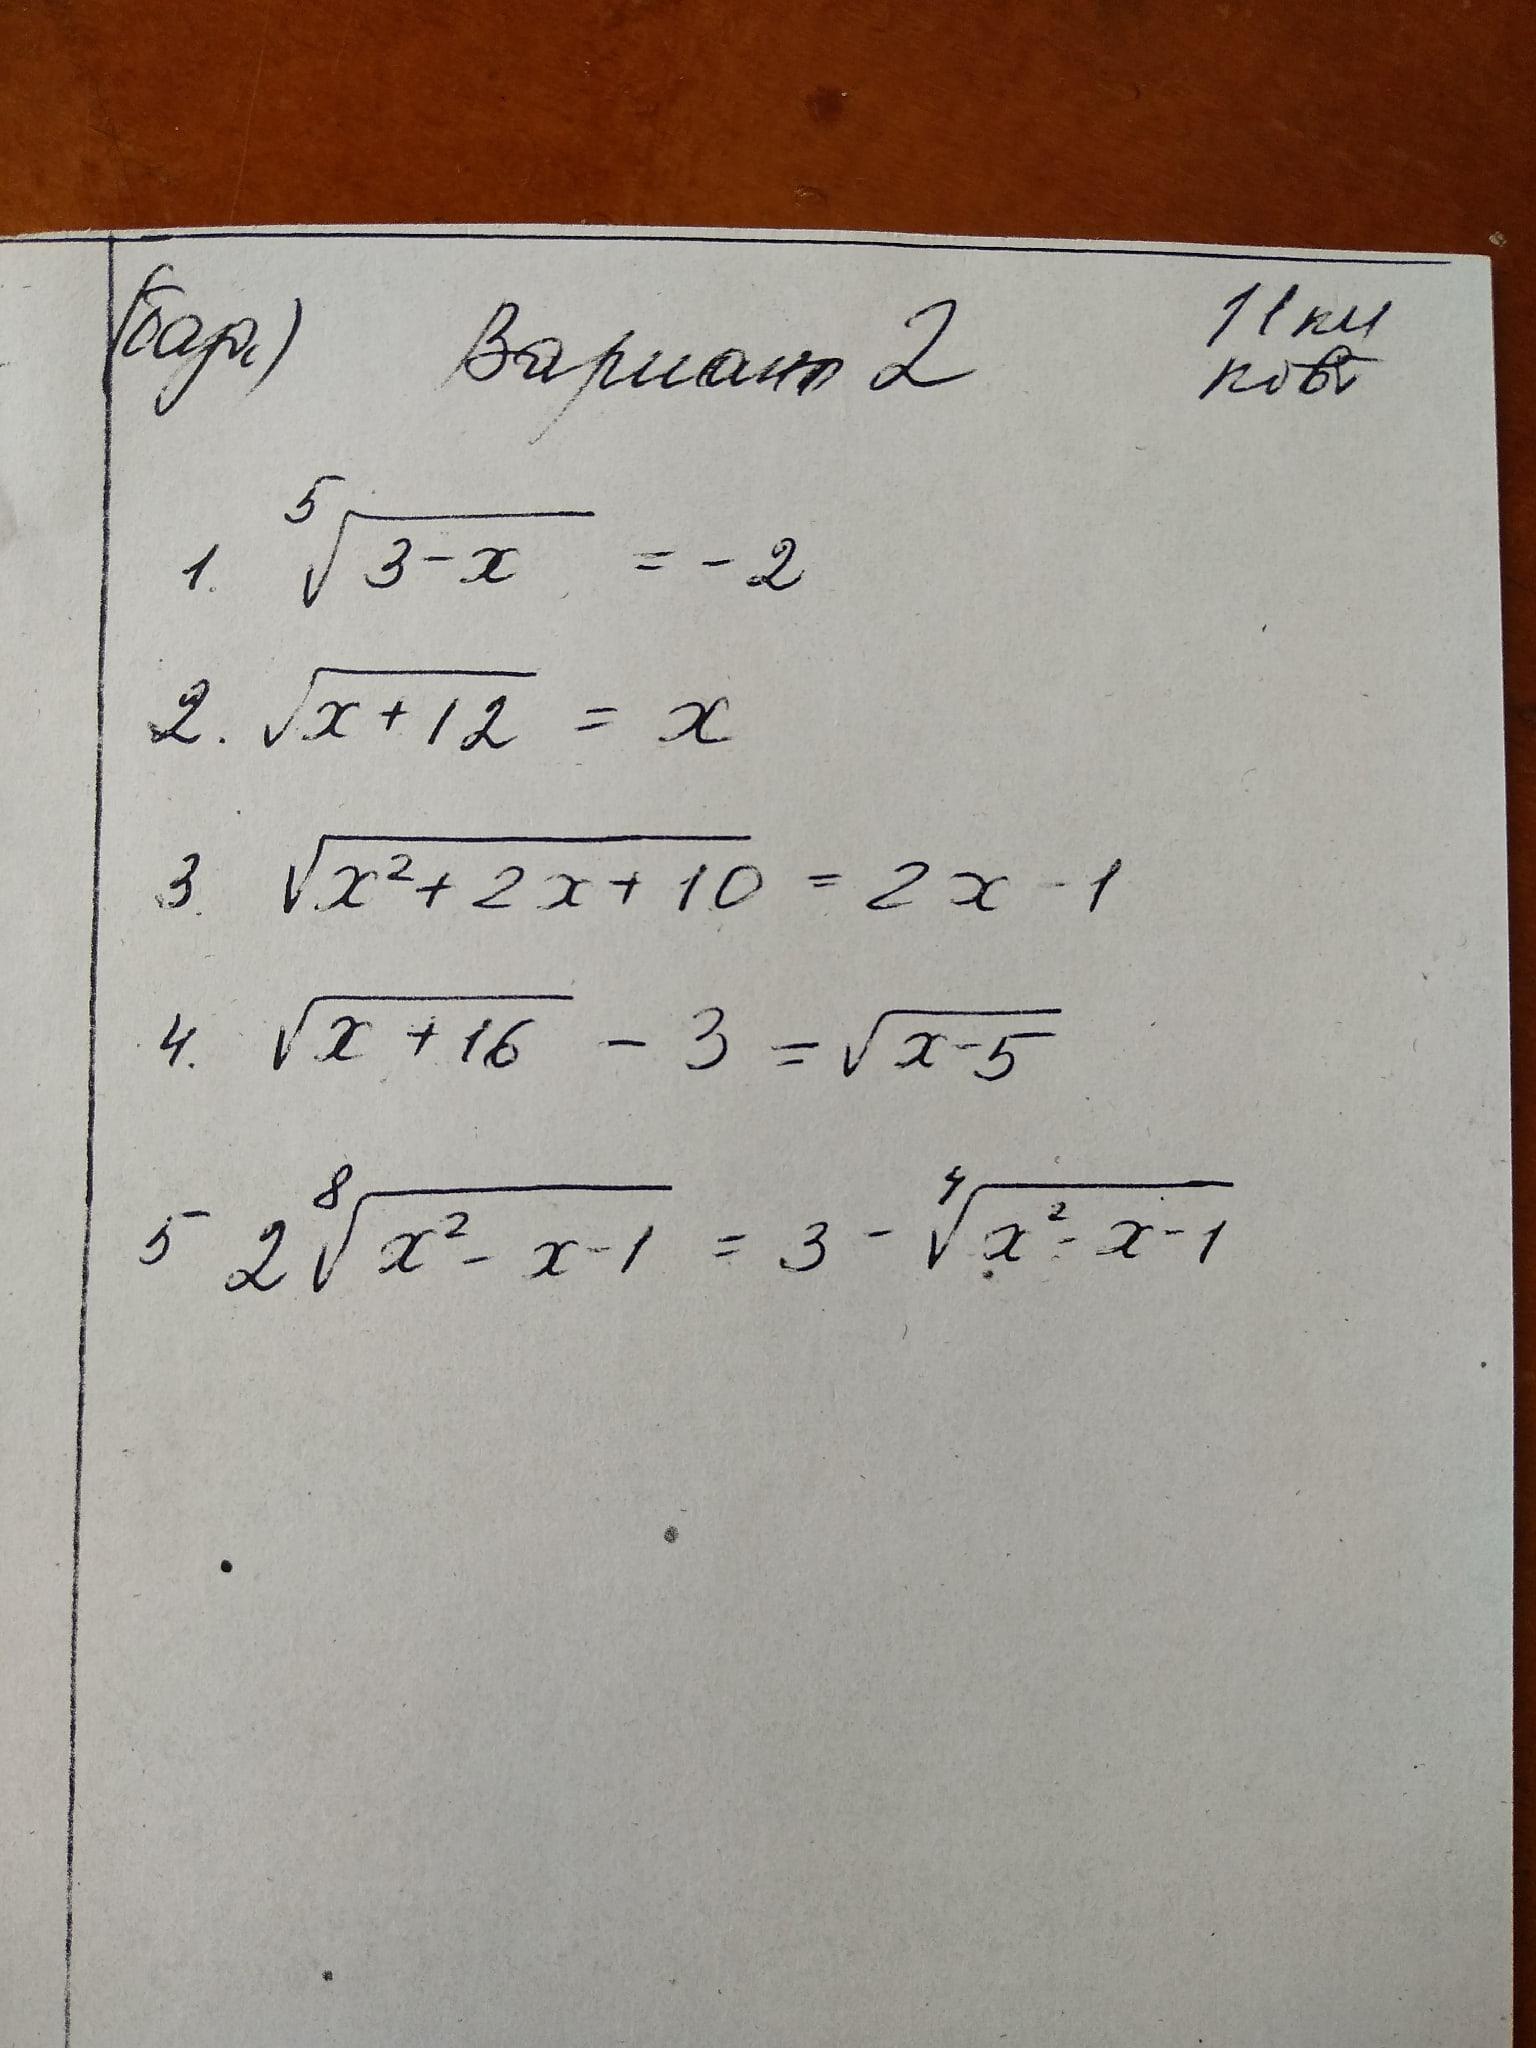 (баз.) Вариант 2 11 кл
повт
1. ⁵√(3-x) = -2
2. √(x+12) = x
3. √(x²+2x+10) = 2x-1
4. √(x+16) - 3 = √(x-5)
5 2 ⁸√(x²-x-1) = 3 - ⁴√(x²-x-1)